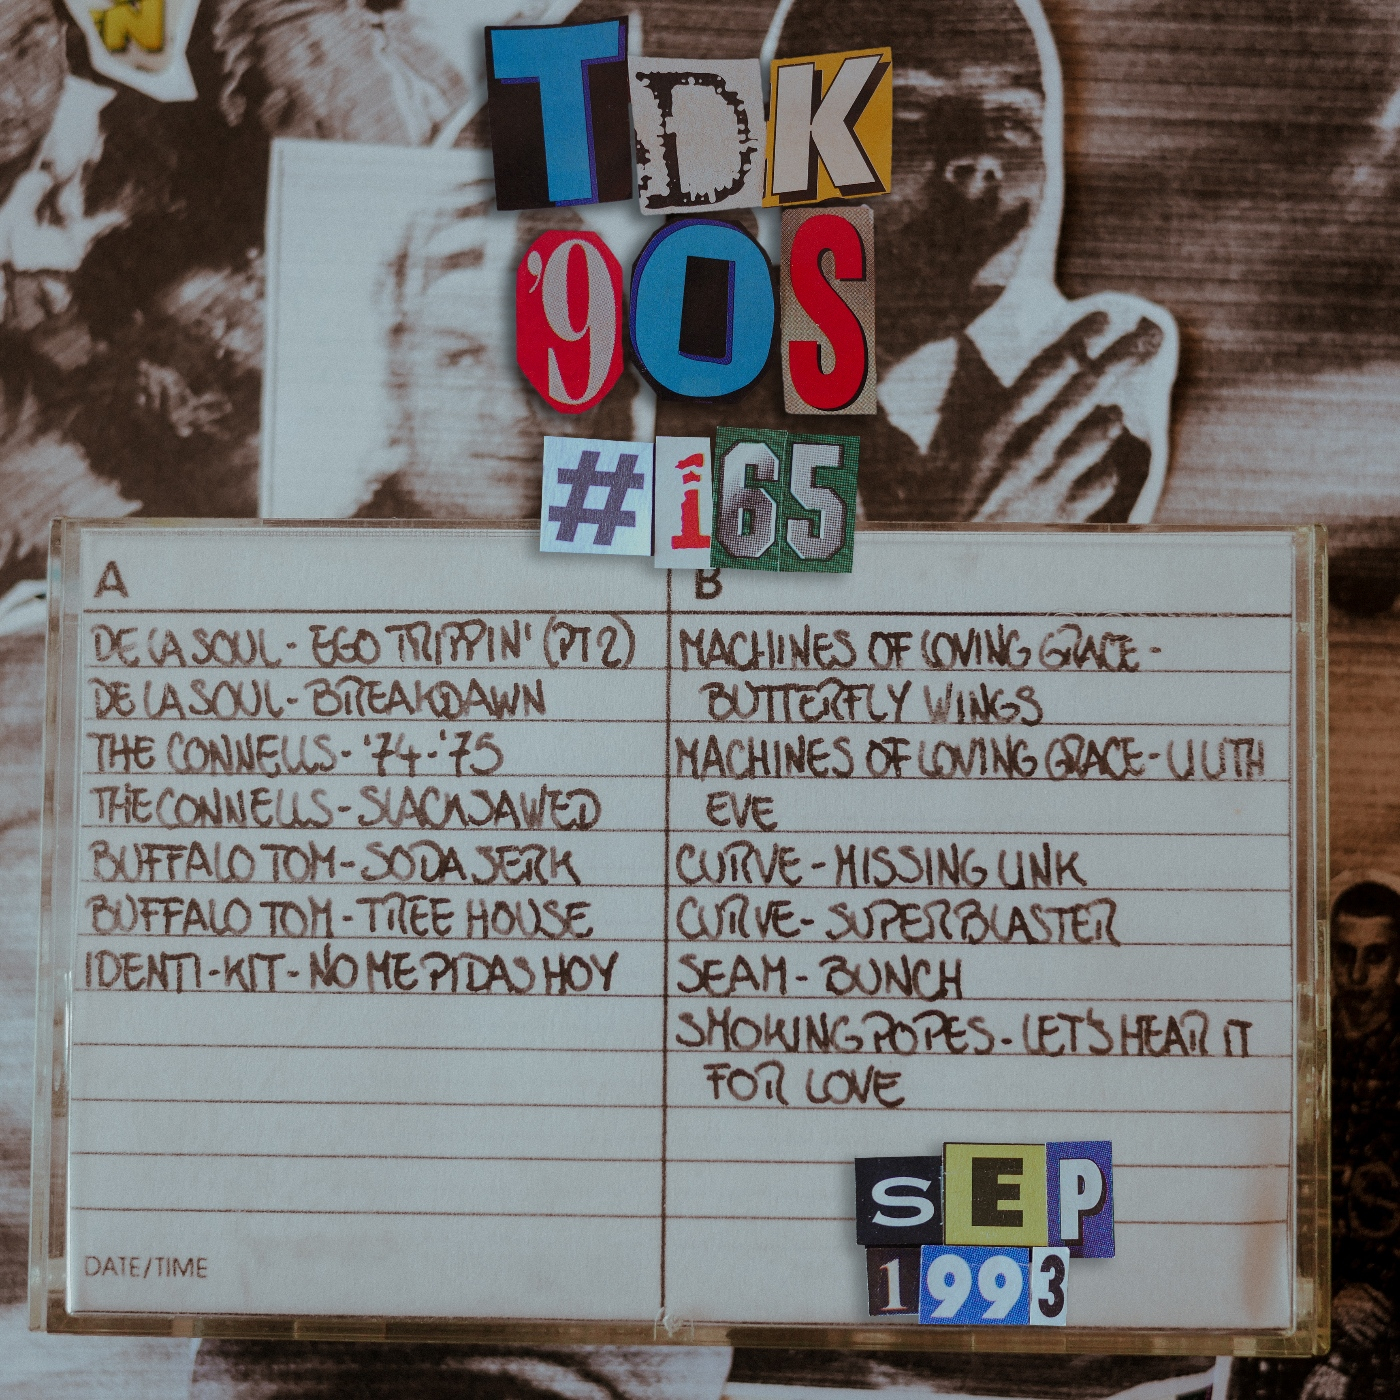 N
TDK
'90S
#165
A
B
DE LA SOUL - EGO TRIPPIN' (PT 2)
DE LA SOUL - BREAKDAWN
THE CONNELLS - '74-'75
THE CONNELLS - SLACKJAWED
BUFFALO TOM - SODA JERK
BUFFALO TOM - TREE HOUSE
IDENTI-KIT - NO ME PIDAS HOY
MACHINES OF LOVING GRACE -
BUTTERFLY WINGS
MACHINES OF LOVING GRACE - LILITH
EVE
CURVE - MISSING LINK
CURVE - SUPERBLASTER
SEAM - BUNCH
SMOKING POPES - LET'S HEAR IT
FOR LOVE
SEP
1993
DATE/TIME